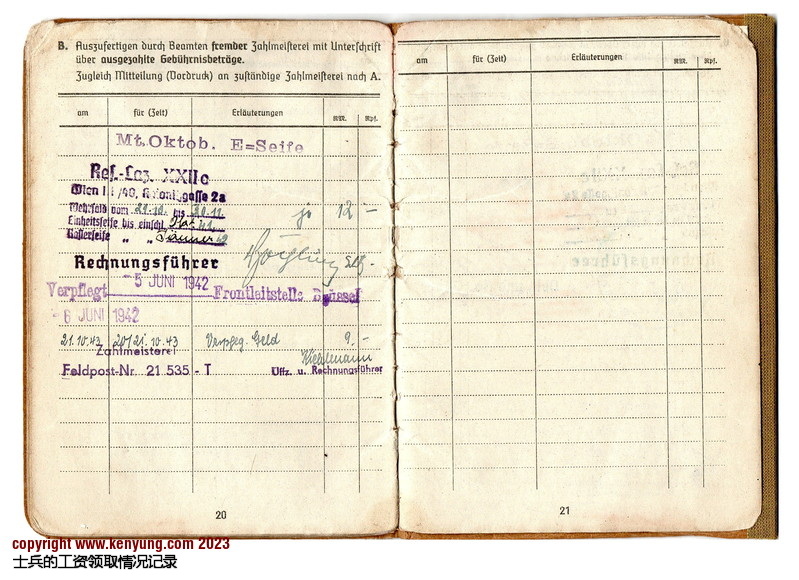 B. Auszufertigen durch Beamten fremder Zahlmeisterei mit Unterschrift
über ausgezahlte Gebührnisbeträge.
Zugleich Mitteilung (Vordruck) an zuständige Zahlmeisterei nach A.
am für (Zeit) Erläuterungen RM. Rpf.
Mt. Oktob. E=Seife
Res.-Laz. XXIIc
Wien
Wehrsold vom 21.10. bis 20.11.
Einheitsseife bis einschl.
Rasierseife " "
12 —
Rechnungsführer
- 5 JUNI 1942
Verpflegt Frontleitstelle Brüssel
- 6 JUNI 1942
21.10.43 20/21.10.43 Verpfleg. Geld 9.-
Zahlmeisterei
Feldpost-Nr. 21 535 - T
Uffz. u. Rechnungsführer
20
am für (Zeit) Erläuterungen RM. Rpf.
21
copyright www.kenyung.com 2023
士兵的工资领取情况记录